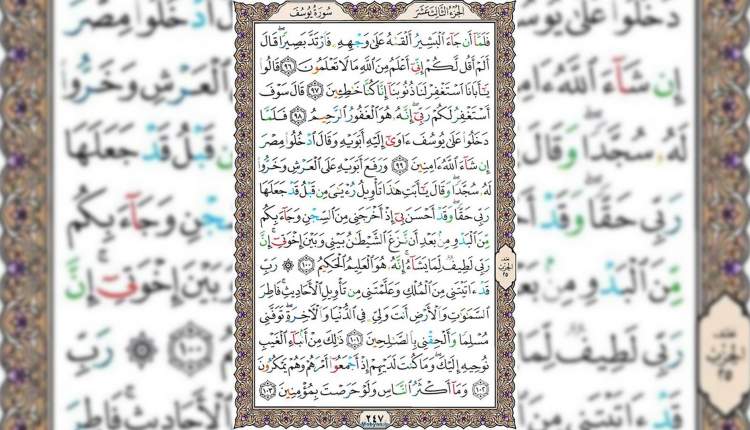 سُورَةُ يُوسُفَ
الجُزْءُ الثَّالِثَ عَشَرَ
فَلَمَّآ أَن جَآءَ ٱلْبَشِيرُ أَلْقَىٰهُ عَلَىٰ وَجْهِهِۦ فَٱرْتَدَّ بَصِيرًا ۖ قَالَ
أَلَمْ أَقُل لَّكُمْ إِنِّىٓ أَعْلَمُ مِنَ ٱللَّهِ مَا لَا تَعْلَمُونَ ٩٦ قَالُوا۟
يَـٰٓأَبَانَا ٱسْتَغْفِرْ لَنَا ذُنُوبَنَآ إِنَّا كُنَّا خَـٰطِـِٔينَ ٩٧ قَالَ سَوْفَ
أَسْتَغْفِرُ لَكُمْ رَبِّىٓ ۖ إِنَّهُۥ هُوَ ٱلْغَفُورُ ٱلرَّحِيمُ ٩٨ فَلَمَّا
دَخَلُوا۟ عَلَىٰ يُوسُفَ ءَاوَىٰٓ إِلَيْهِ أَبَوَيْهِ وَقَالَ ٱدْخُلُوا۟ مِصْرَ
إِن شَآءَ ٱللَّهُ ءَامِنِينَ ٩٩ وَرَفَعَ أَبَوَيْهِ عَلَى ٱلْعَرْشِ وَخَرُّوا۟
لَهُۥ سُجَّدًا ۖ وَقَالَ يَـٰٓأَبَتِ هَـٰذَا تَأْوِيلُ رُءْيَـٰىَ مِن قَبْلُ قَدْ جَعَلَهَا
رَبِّى حَقًّا ۖ وَقَدْ أَحْسَنَ بِىٓ إِذْ أَخْرَجَنِى مِنَ ٱلسِّجْنِ وَجَآءَ بِكُم
مِّنَ ٱلْبَدْوِ مِنۢ بَعْدِ أَن نَّزَغَ ٱلشَّيْطَـٰنُ بَيْنِى وَبَيْنَ إِخْوَتِىٓ ۚ إِنَّ
رَبِّى لَطِيفٌ لِّمَا يَشَآءُ ۚ إِنَّهُۥ هُوَ ٱلْعَلِيمُ ٱلْحَكِيمُ ١٠٠ ۞ رَبِّ
قَدْ ءَاتَيْتَنِى مِنَ ٱلْمُلْكِ وَعَلَّمْتَنِى مِن تَأْوِيلِ ٱلْأَحَادِيثِ ۚ فَاطِرَ
ٱلسَّمَـٰوَٰتِ وَٱلْأَرْضِ أَنتَ وَلِىِّۦ فِى ٱلدُّنْيَا وَٱلْـَٔاخِرَةِ ۖ تَوَفَّنِى
مُسْلِمًا وَأَلْحِقْنِى بِٱلصَّـٰلِحِينَ ١٠١ ذَٰلِكَ مِنْ أَنۢبَآءِ ٱلْغَيْبِ
نُوحِيهِ إِلَيْكَ ۖ وَمَا كُنتَ لَدَيْهِمْ إِذْ أَجْمَعُوٓا۟ أَمْرَهُمْ وَهُمْ يَمْكُرُونَ
١٠٢ وَمَآ أَكْثَرُ ٱلنَّاسِ وَلَوْ حَرَصْتَ بِمُؤْمِنِينَ ١٠٣
٢٤٧